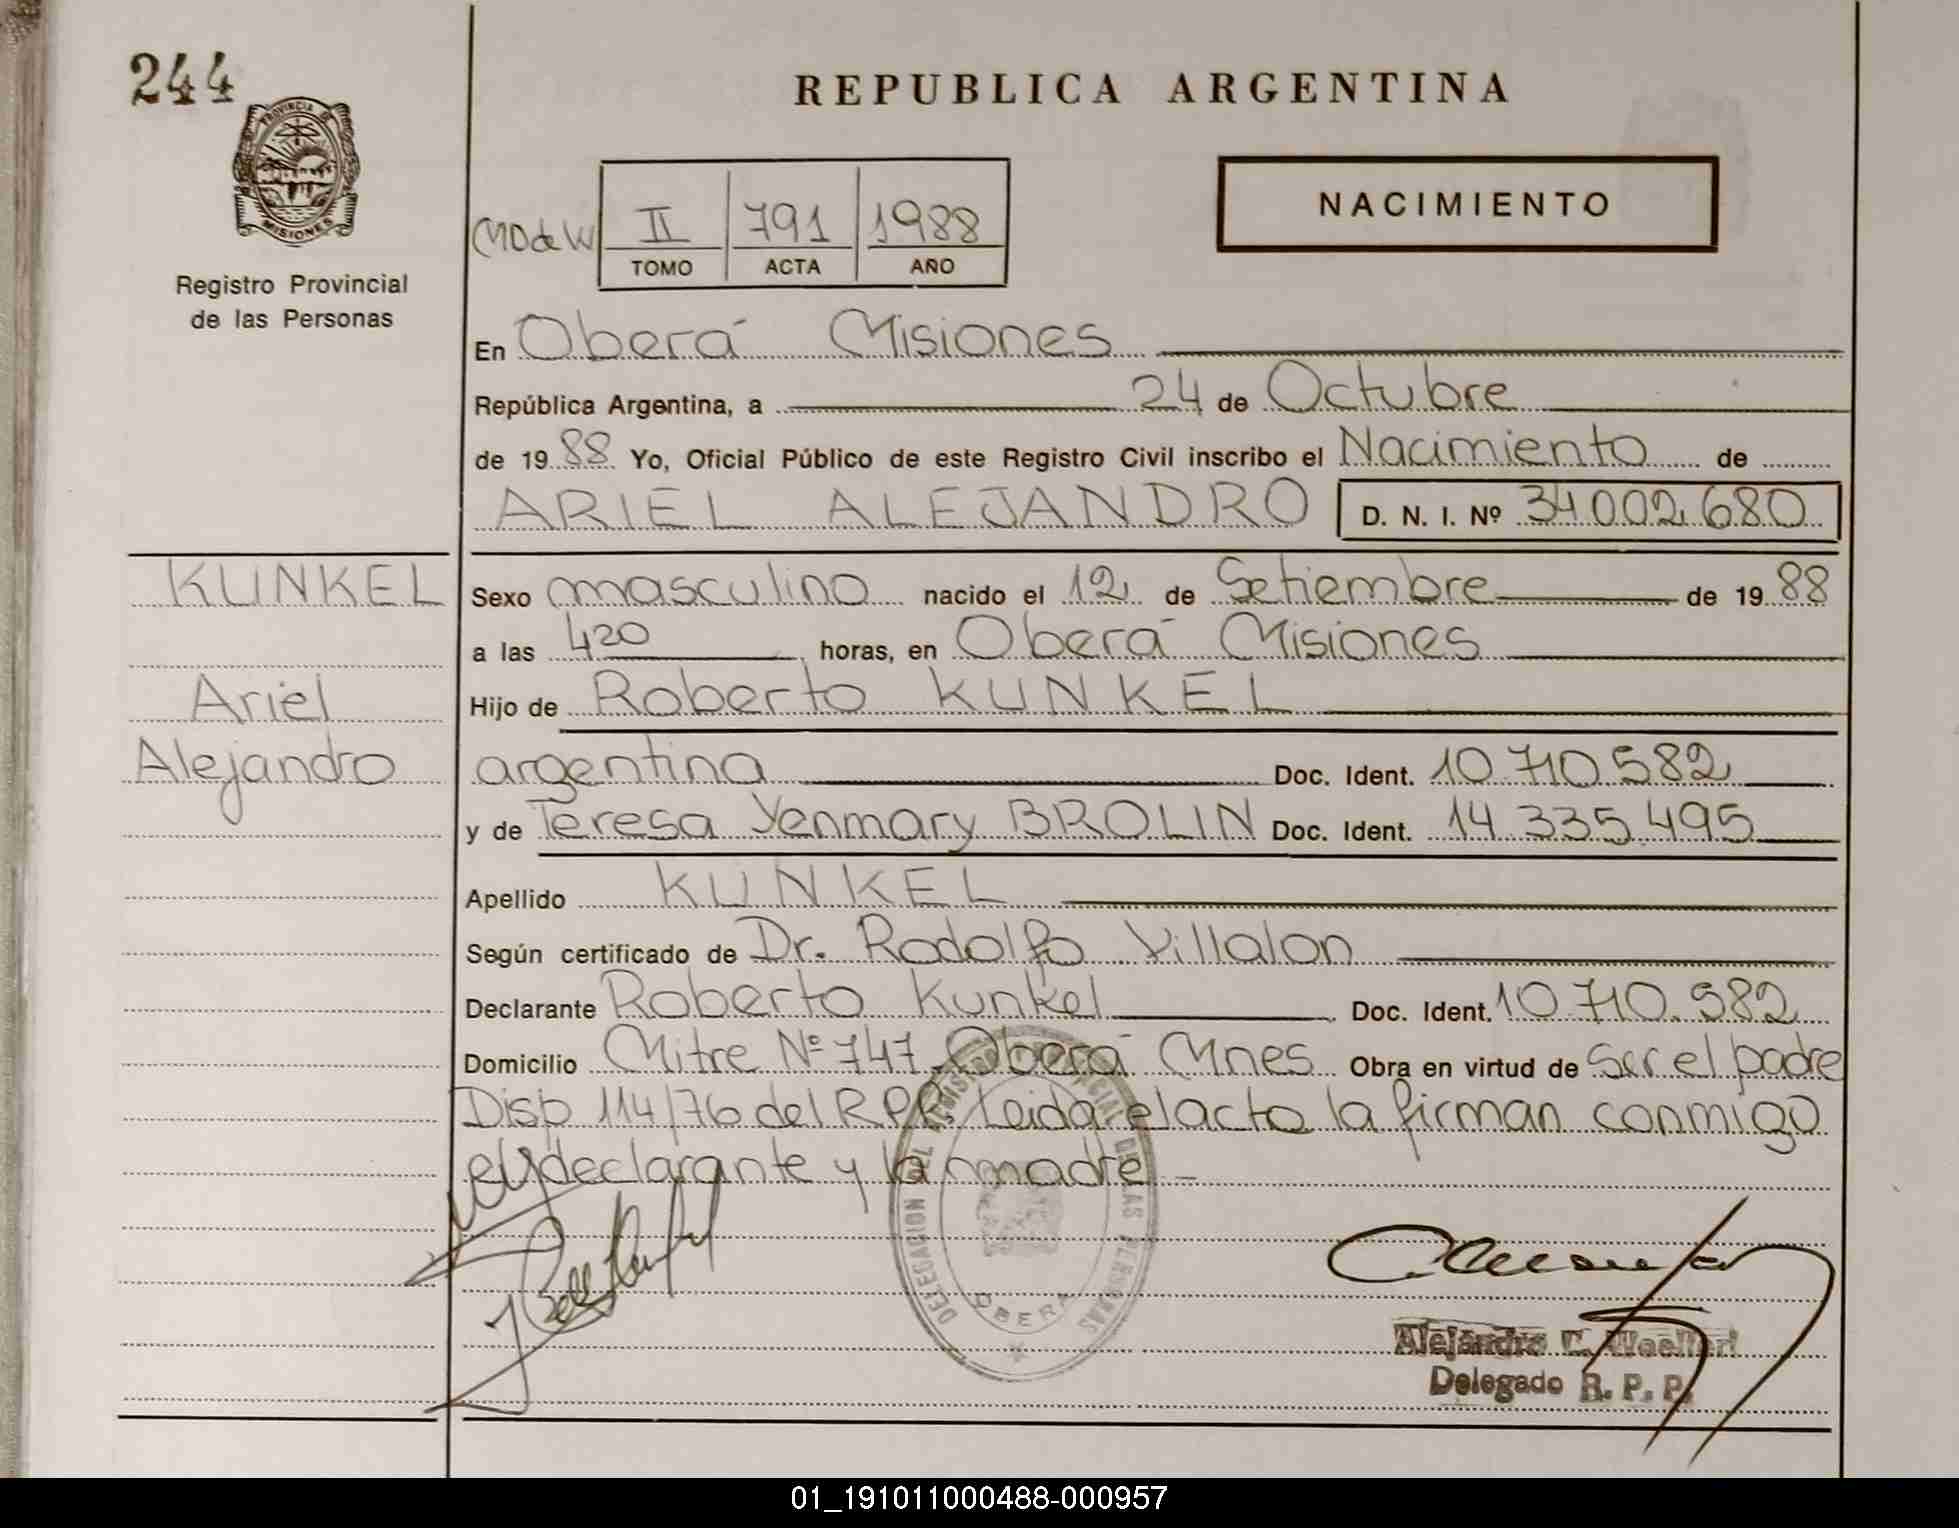 244
REPUBLICA ARGENTINA
PROVINCIA DE
MISIONES
Registro Provincial
de las Personas
II 791 1988
TOMO ACTA AÑO
NACIMIENTO
En Oberá Misiones
República Argentina, a 24 de Octubre
de 1988 Yo, Oficial Público de este Registro Civil inscribo el Nacimiento de
ARIEL ALEJANDRO D. N. I. Nº 34.002.680
KUNKEL
Ariel
Alejandro
Sexo masculino nacido el 12 de Setiembre de 1988
a las 420 horas, en Oberá Misiones
Hijo de Roberto KUNKEL
argentina Doc. Ident. 10.710.582
y de Teresa Yenmary BROLIN Doc. Ident. 14.335.495
Apellido KUNKEL
Según certificado de Dr. Rodolfo Villalon
Declarante Roberto Kunkel Doc. Ident. 10.710.582
Domicilio Mitre Nº 747 Oberá Mnes Obra en virtud de Ser el padre
Disp 114/76 del RPP. Leida el acta la firman conmigo
el declarante y la madre.-
DELEGACION DEL REGISTRO PROVINCIAL DE LAS PERSONAS
OBERA
Alejandro C.
Delegado R. P. P.
01_191011000488-000957